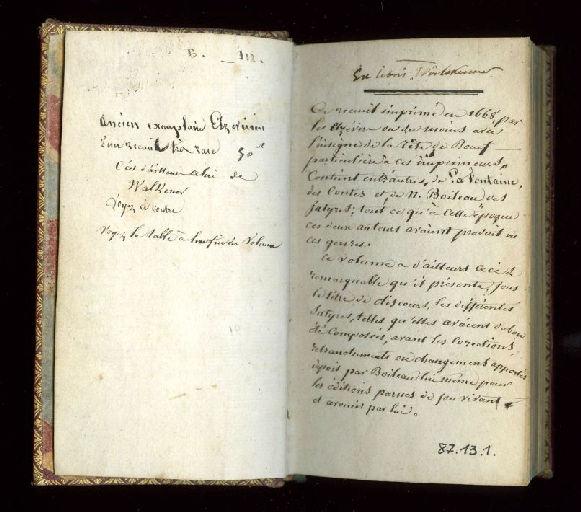 B. _ III.
ancien exemplaire Elzevirien
50
c'est d'ailleurs celui de
Walkenaer
Voyez ci contre
Voyez la table à la fin du Volume
Ex libris Walckenaer
Ce recueil imprimé en 1668 par
les Elzévir ou du moins avec
l'insigne de la Tête de Boeuf
particulière à ces imprimeurs,
Contient entr'autres, de La Fontaine,
des Contes et de N. Boileau des
Satyres; tout ce qu'à cette époque
ces deux auteurs avaient produit en
ces genres.
Ce volume a d'ailleurs ceci de
remarquable qu'il présente, sous
le titre de discours, les différentes
Satyres, telles qu'elles avaient d'abord
été composées, avant les corrections,
retranchements ou changements apportés
depuis par Boileau lui même pour
les éditions parues de son vivant
et avouées par lui.
87.13.1.